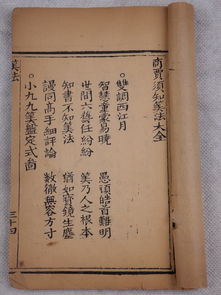 商賈須知筭法大全
。雙調西江月
智慧童蒙易曉　愚頑皓首難明
世間六藝任紛紛　筭乃人之根本
知書不知筭法　猶如寶鏡生塵
謾同高手細評論　數徹無容方寸
。小九九筭盤定式啚
筭法
三十四